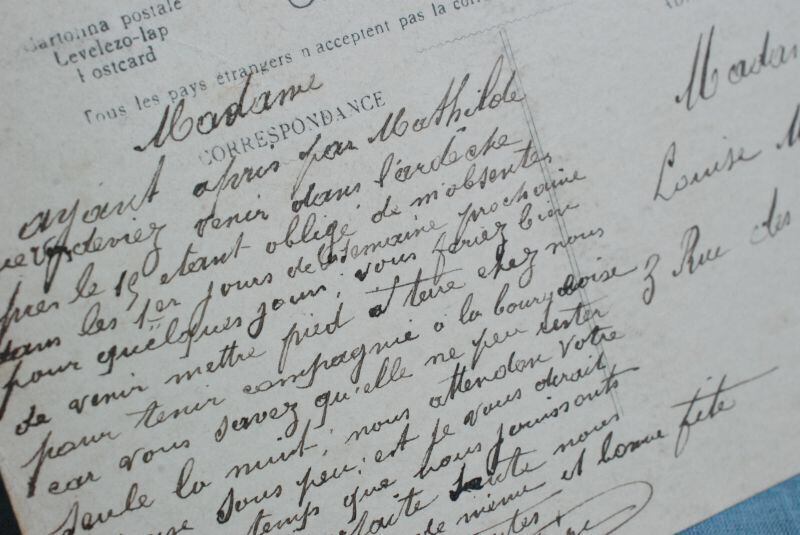 Cartolina postale
Levelezo-lap
Postcard
Tous les pays étrangers n'acceptent pas la
CORRESPONDANCE
Madame
ayant apris par Mathilde
deviez venir dans l'ardèche
le 15 etant obligé de m'absenter
dans les 1er jours de semaine prochaine
pour quelques jours, vous feriez bien
de venir mettre pied a terre chez nous
pour tenir compagnie a la bourgeoise
car vous savez qu'elle ne peu rester
seule la nuit, nous attendon votre
sous peu; est je vous
temps que nous jouissants
santé nous
de même et bonne fête
Madam
Louise M
3 Rue des